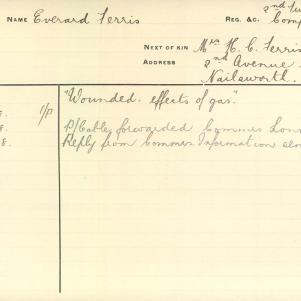 2nd
NAME Everard Ferris REG. &C. Comp
NEXT OF KIN Mrs H. C. Ferris
ADDRESS 2nd Avenue
Nailsworth.
"Wounded. effects of gas".
P/Cable forwarded Commrs Lon
Reply from Commrs Information